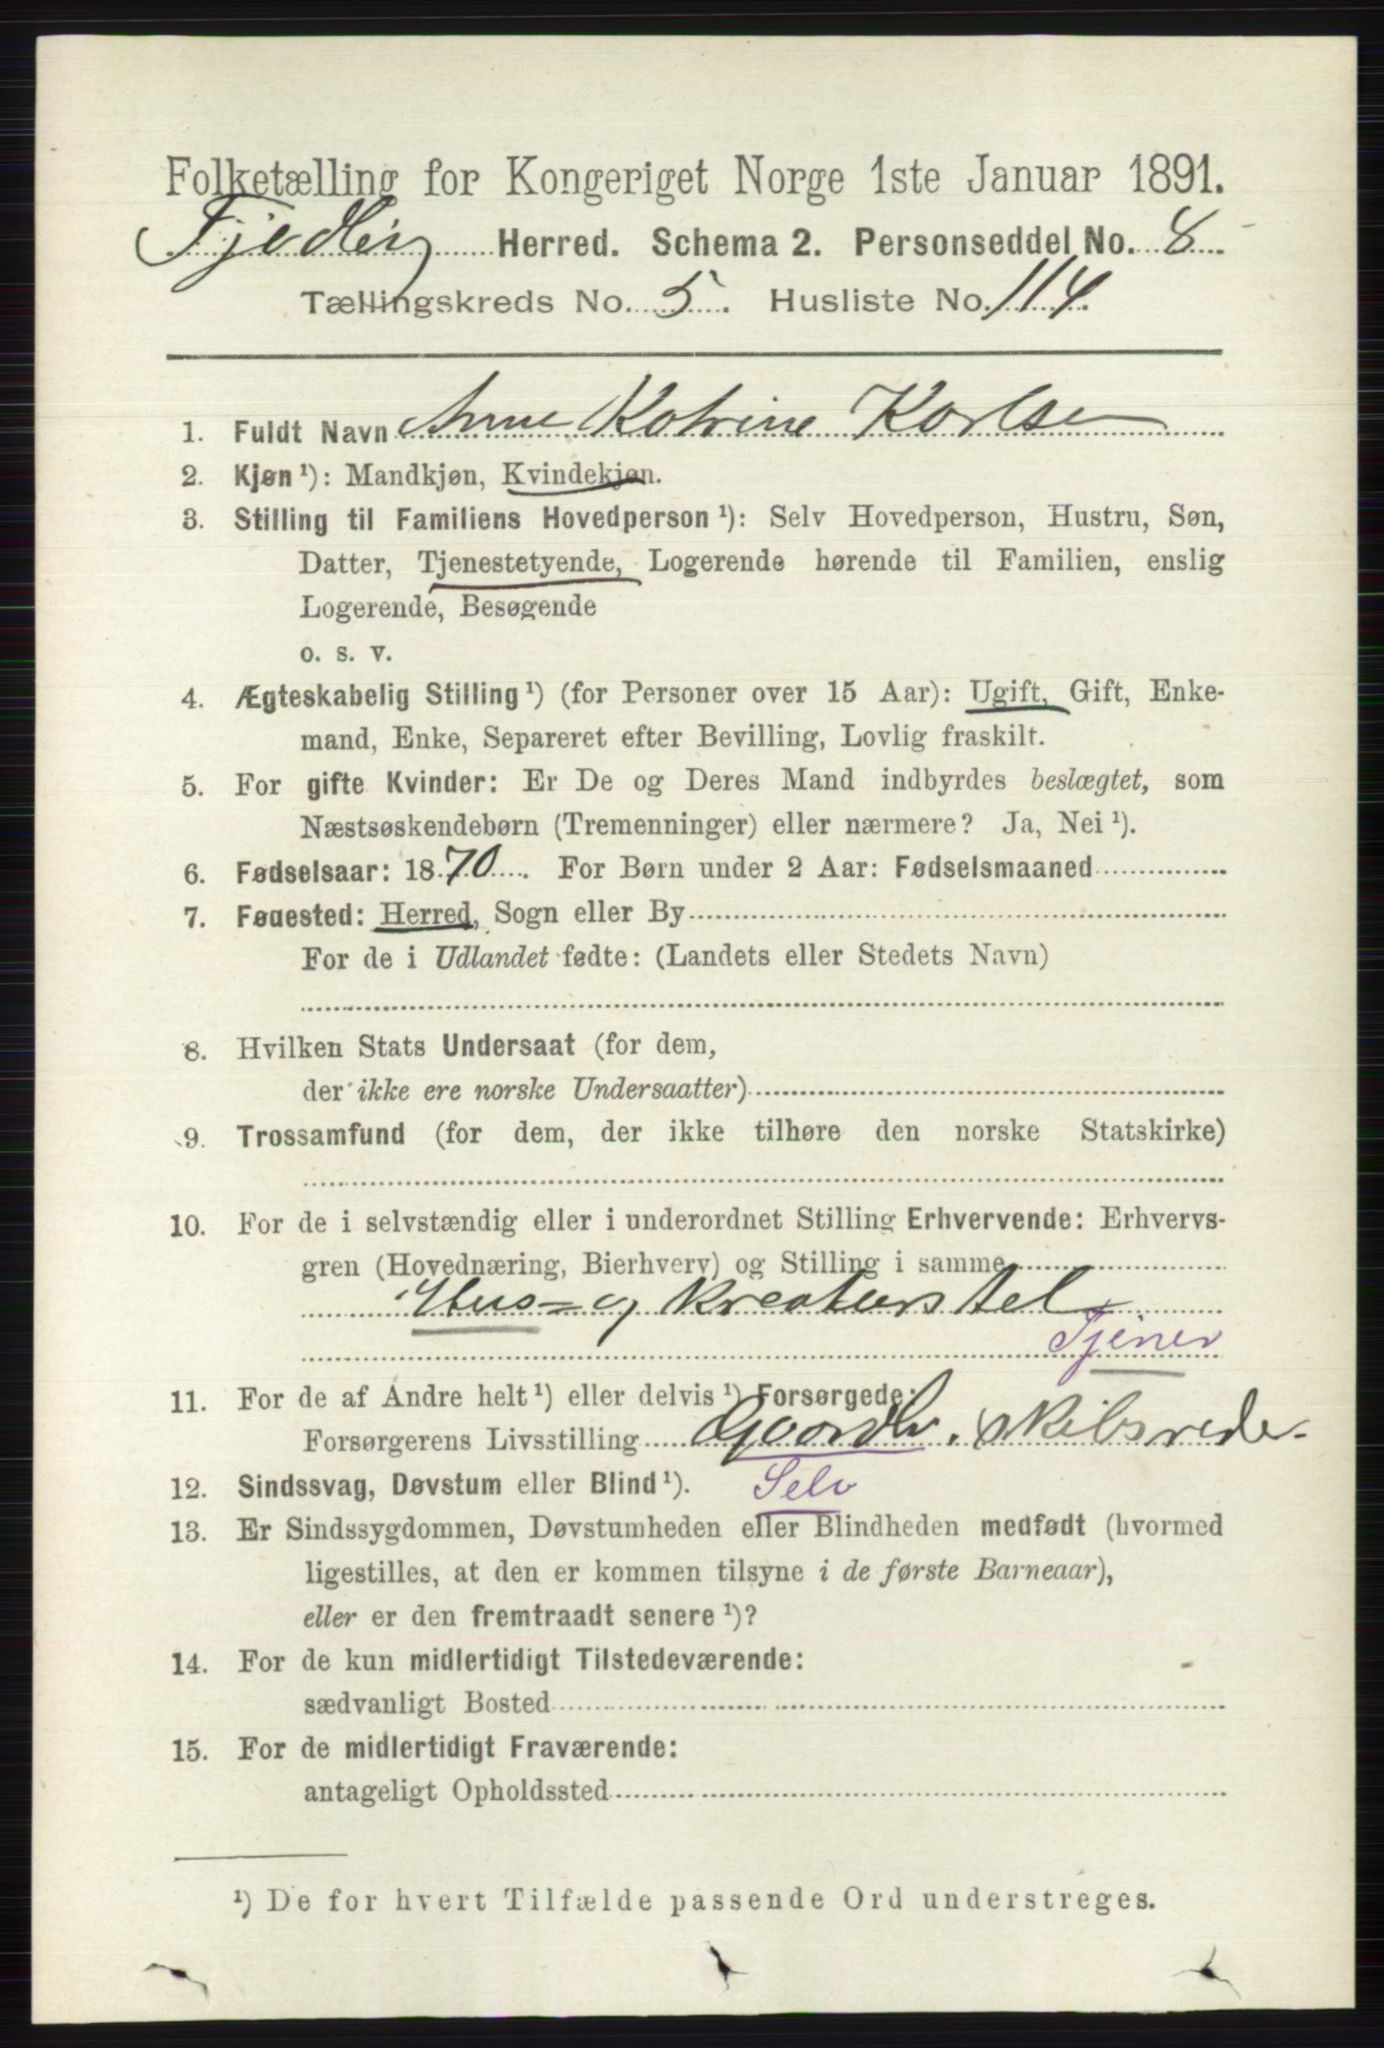 Folketælling for Kongeriget Norge 1ste Januar 1891.
Herred. Schema 2. Personseddel No. 8
Tællingskreds No. 5. Husliste No. 114.
1. Fuldt Navn Anne Katrine Karlsen
2. Kjøn ¹): Mandkjøn, Kvindekjøn.
3. Stilling til Familiens Hovedperson ¹): Selv Hovedperson, Hustru, Søn,
Datter, Tjenestetyende, Logerende hørende til Familien, enslig
Logerende, Besøgende
o. s. v.
4. Ægteskabelig Stilling ¹) (for Personer over 15 Aar): Ugift, Gift, Enke-
mand, Enke, Separeret efter Bevilling, Lovlig fraskilt.
5. For gifte Kvinder: Er De og Deres Mand indbyrdes beslægtet, som
Næstsøskendebørn (Tremenninger) eller nærmere? Ja, Nei ¹).
6. Fødselsaar: 1870. For Børn under 2 Aar: Fødselsmaaned
7. Føuested: Herred, Sogn eller By
For de i Udlandet fødte: (Landets eller Stedets Navn)
8. Hvilken Stats Undersaat (for dem,
der ikke ere norske Undersaatter)
9. Trossamfund (for dem, der ikke tilhøre den norske Statskirke)
10. For de i selvstændig eller i underordnet Stilling Erhvervende: Erhvervs-
gren (Hovednæring, Bierhverv) og Stilling i samme
Hus- og Kreaturstel
Tjener
11. For de af Andre helt ¹) eller delvis ¹) Forsørgede:
Forsørgerens Livsstilling Gaardbr. Skibsreder
12. Sindssvag, Døvstum eller Blind ¹). Selv
13. Er Sindssygdommen, Døvstumheden eller Blindheden medfødt (hvormed
ligestilles, at den er kommen tilsyne i de første Barneaar),
eller er den fremtraadt senere ¹)?
14. For de kun midlertidigt Tilstedeværende:
sædvanligt Bosted
15. For de midlertidigt Fraværende:
antageligt Opholdssted
¹) De for hvert Tilfælde passende Ord understreges.